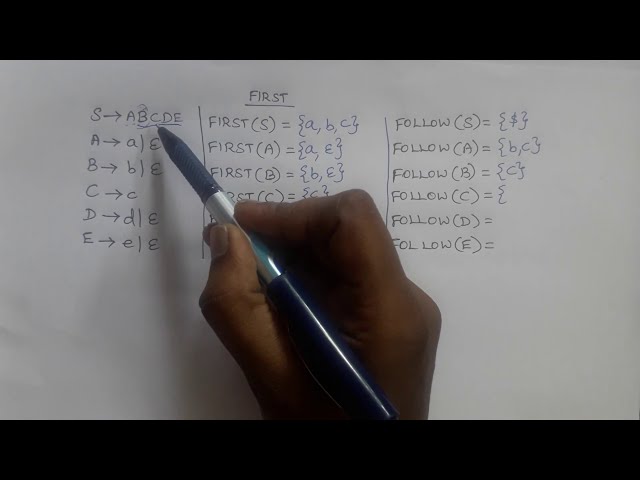 FIRST
S → ABCDE
A → a | ε
B → b | ε
C → c
D → d | ε
E → e | ε
FIRST(S) = {a, b, c}
FIRST(A) = {a, ε}
FIRST(B) = {b, ε}
FIRST(C) = {c}
FOLLOW(S) = {$}
FOLLOW(A) = {b,c}
FOLLOW(B) = {c}
FOLLOW(C) = {
FOLLOW(D) =
FOLLOW(E) =